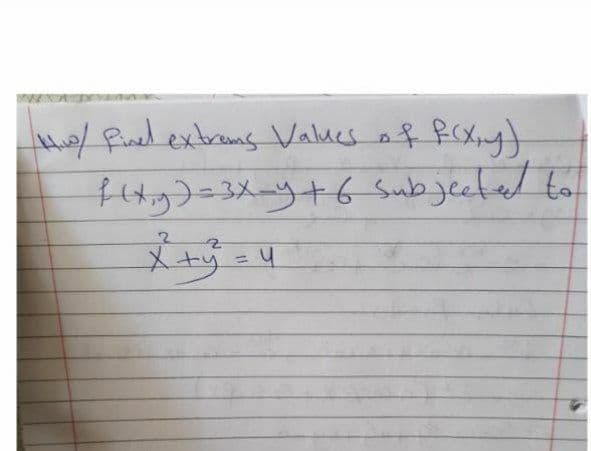 H.w/ Find extrems Values of f(x,y)
f(x,y)=3x-y+6 Subjected to
x²+y²=4